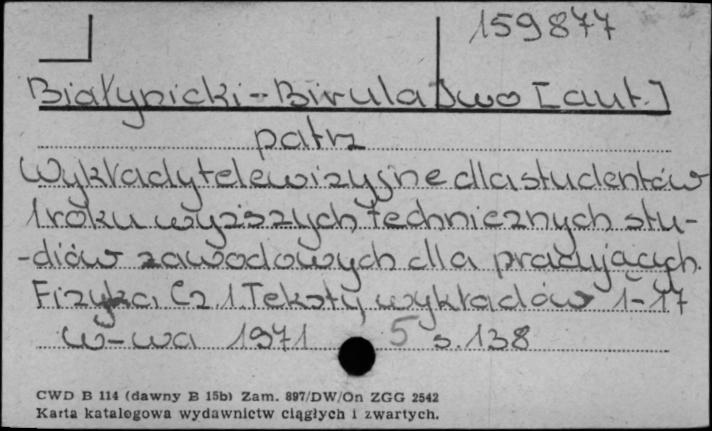 159877
Białynicki-Birula Iwo [aut.]
patrz
Wykłady telewizyjne dla studentów
1 roku wyższych technicznych stu-
-diów zawodowych dla pracujących.
Fizyka, Cz. 1. Teksty wykładów 1-17
W-wa 1971 5 s. 138
CWD B 114 (dawny B 15b) Zam. 897/DW/On ZGG 2542
Karta katalogowa wydawnictw ciągłych i zwartych.